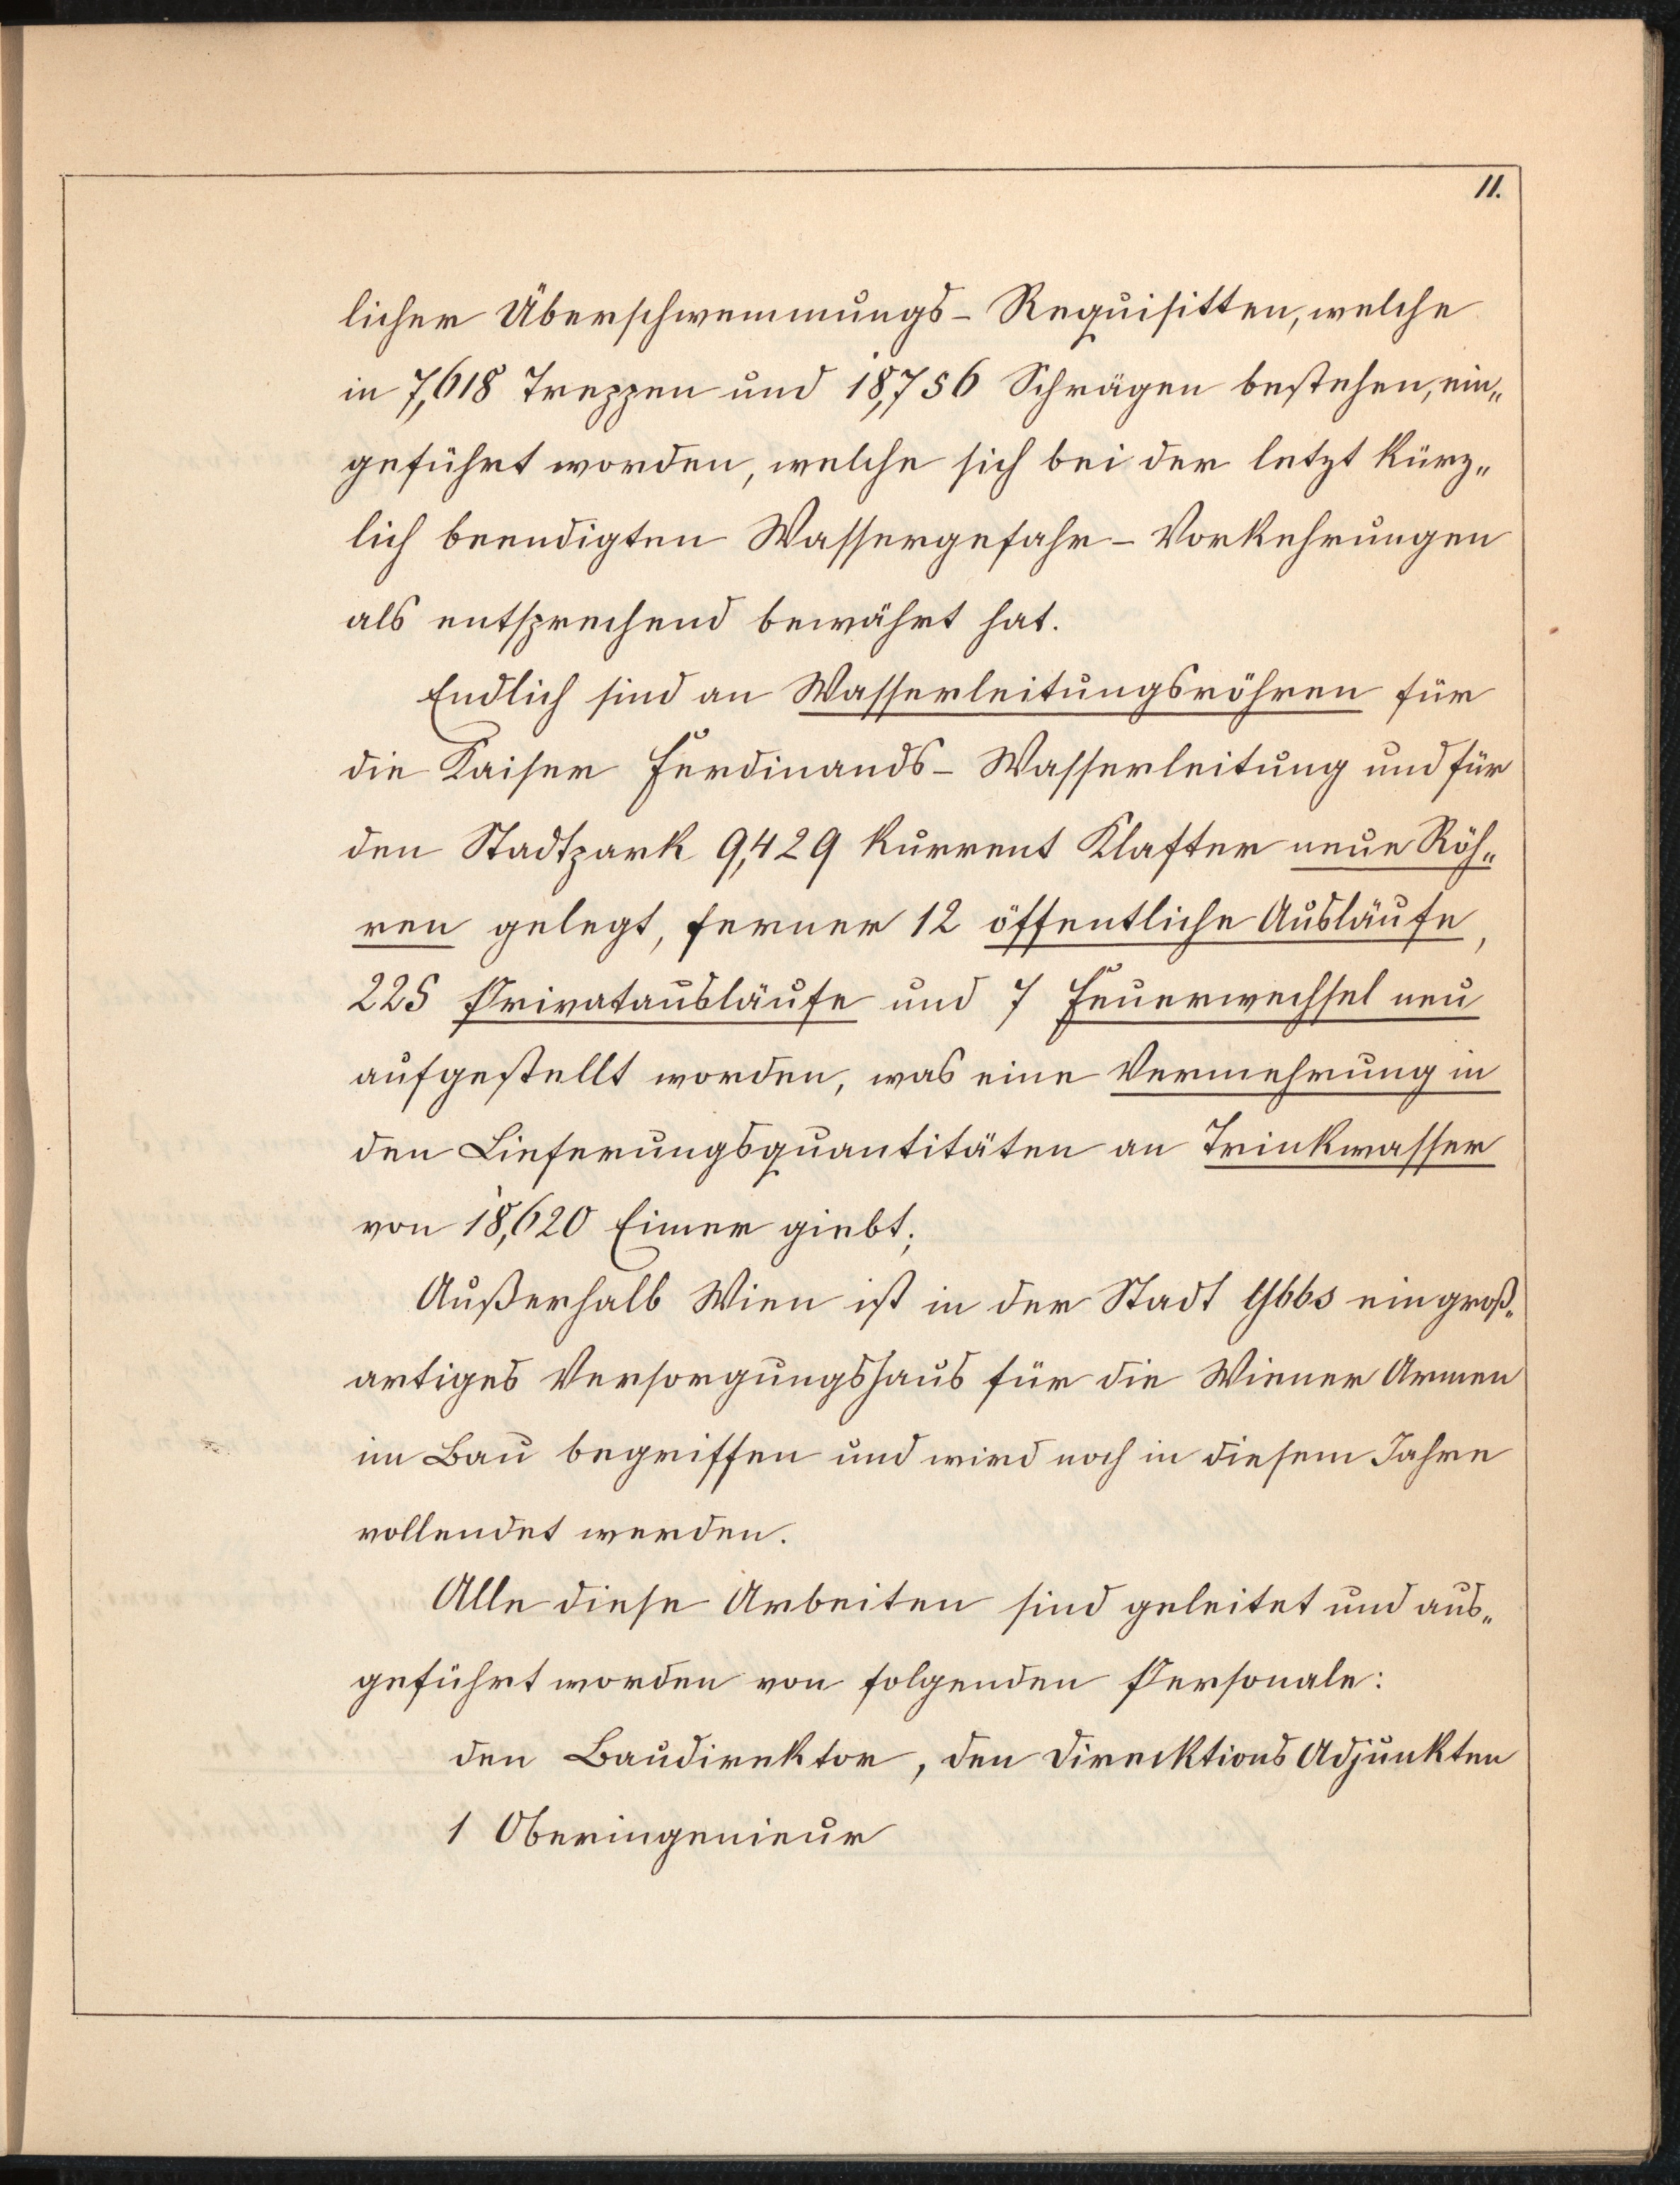 11.
licher Überschwemmungs-Requisitten, welche
in 7,618 Treppen und 18,756 Schrägen bestehen, ein„
geführt worden, welche sich bei der letzt kürz„
lich beendigten Wassergefahr-Vorkehrungen
als entsprechend bewährt hat.
Endlich sind an Wasserleitungsröhren für
die Kaiser Ferdinands-Wasserleitung und für
den Stadtpark 9,429 kurrent Klafter neue Röh„
ren gelegt, ferner 12 öffentliche Ausläufe,
225 Privatausläufe und 7 Feuerwechsel neu
aufgestellt worden, was eine Vermehrung in
den Lieferungsquantitäten an Trinkwasser
von 18,620 Eimer giebt;
Außerhalb Wien ist in der Stadt Ybbs ein groß„
artiges Versorgungshaus für die Wiener Armen
im Bau begriffen und wird noch in diesem Jahre
vollendet werden.
Alle diese Arbeiten sind geleitet und aus„
geführt worden von folgenden Personale:
den Baudirektor, den Direcktions Adjunkten
1 Oberingenieur